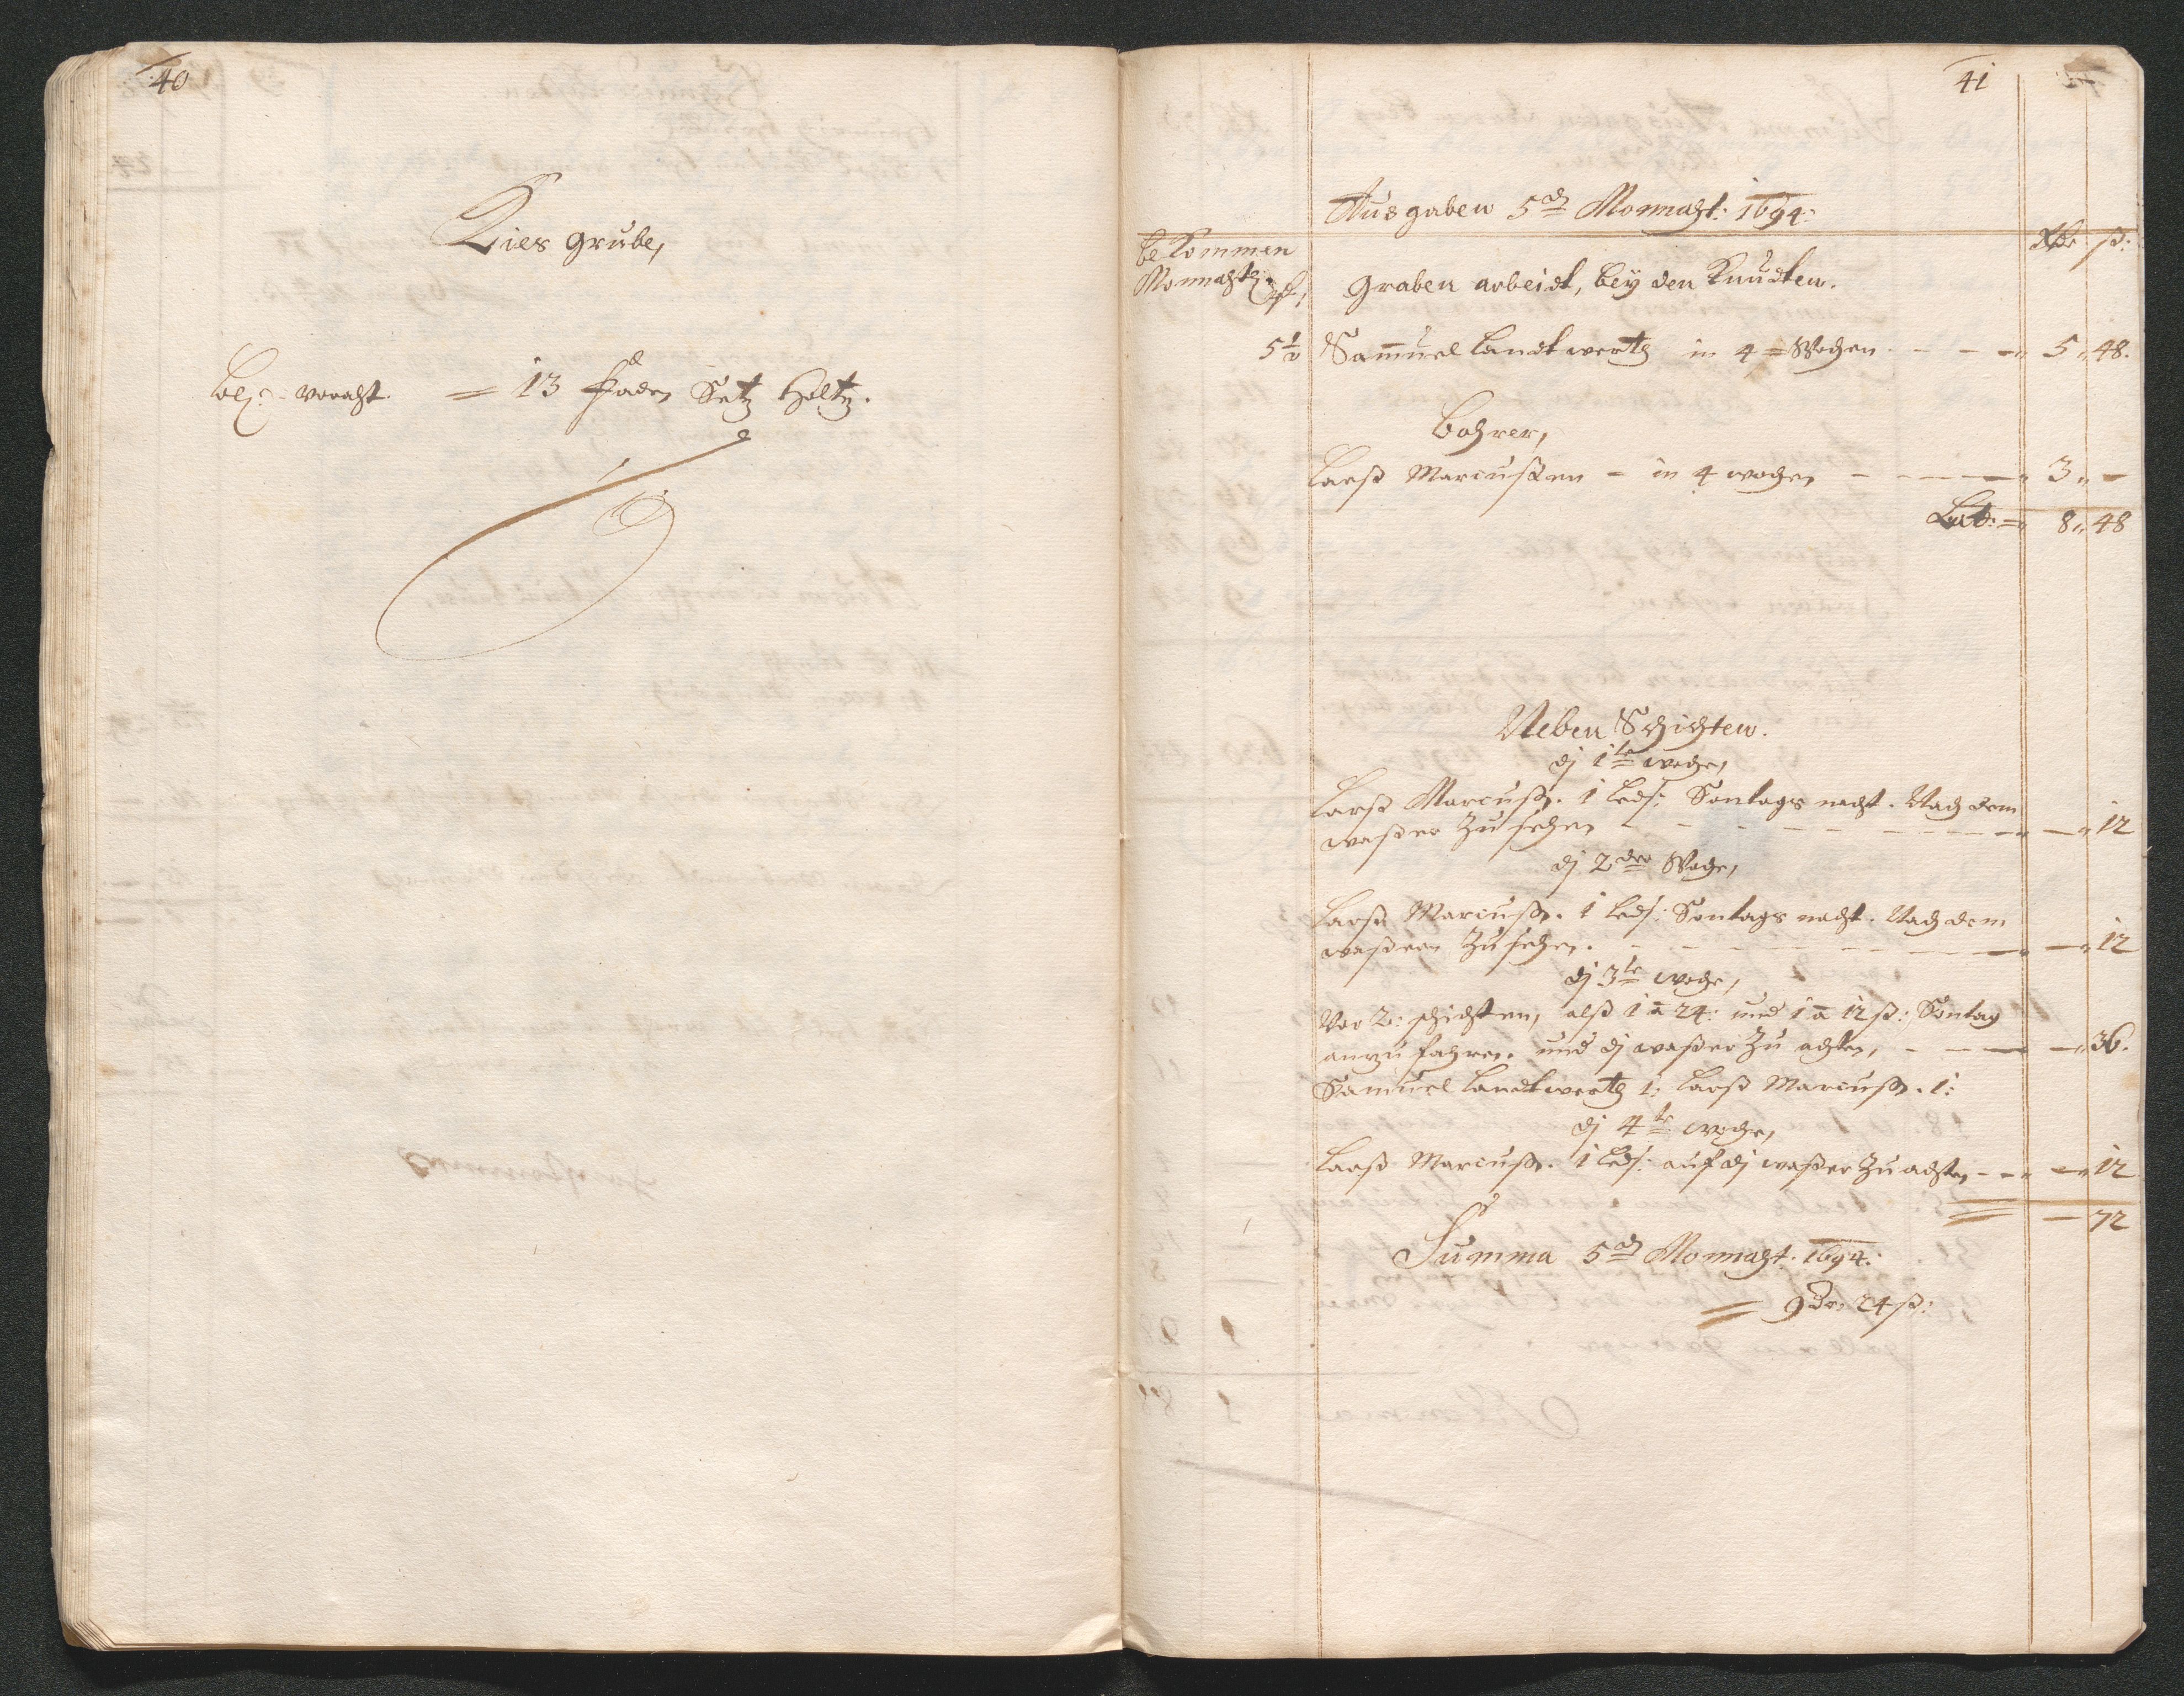 40
Kies grube,
vorraht. = 13 Faden Setz Holtz.
41
Ausgaben 5 Monnaht: 1694:
Rdr ß:
be Kommen
Monnahtl:
graben arbeidt, bey den Knudten.
5½ Sam̃uel Landtwerth in 4 = Wochen - - - 5 „ 48.
Bohrer,
Larß Marcußen - in 4 wochen - - - - 3 „ -
Lat: = 8 „ 48
Neben Schichten.
dj 1te woche,
Larß Marcuß. 1 Led: Sontags nacht. Nach dem
waßer Zu sehen - - - - - - „ 12
dj 2der Woche,
Larß Marcuß. 1 Led: Sontags nacht. Nach dem
waßern Zu sehen. - - - - - - „ 12
dj 3te woche,
Vor 2: schichten, alß 1 a 24: und 1 a 12 ß: Sontag
anzu fahren. und dj waßer Zu achten, - - - „ 36.
Samuel Landtwerth 1: Larß Marcuß. 1:
dj 4te woche,
Larß Marcuß. 1 Led: auf dj waßer Zu achten - - „ 12
= - 72
Summa 5 Monnaht. 1694:
= 9 Dr, 24 ß: